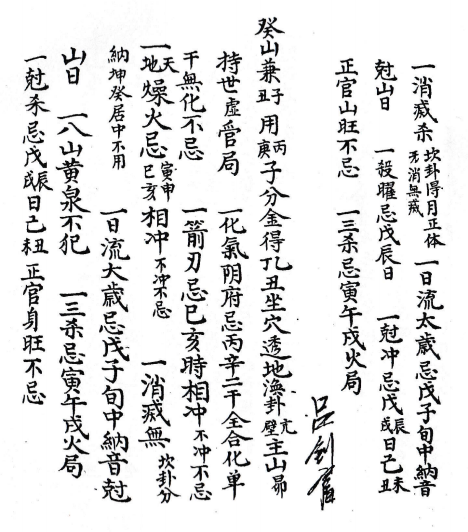 一消滅杀坎卦得月正体消無滅一日流太歲忌戊子旬中納音
尅山日 一殺曜忌戊辰日 一尅冲忌戊辰戌日己未丑
正官山旺不忌 一三杀忌寅午戌火局
癸山兼子丑用丙庚子分金得丁丑坐穴透地渙卦亢壁主山昴
持世虚營局 一化氣阴府忌丙辛二干全合化单
干無化不忌 一箭刃忌巳亥時相冲不冲不忌
一天地燥火忌寅申巳亥相冲不冲不忌 一消滅無坎卦分
納坤癸居中不用 一日流大歲忌戊子旬中納音尅
山日 一八山黄泉不犯 一三杀忌寅午戌火局
一尅杀忌戊辰戌日己丑未正官身旺不忌